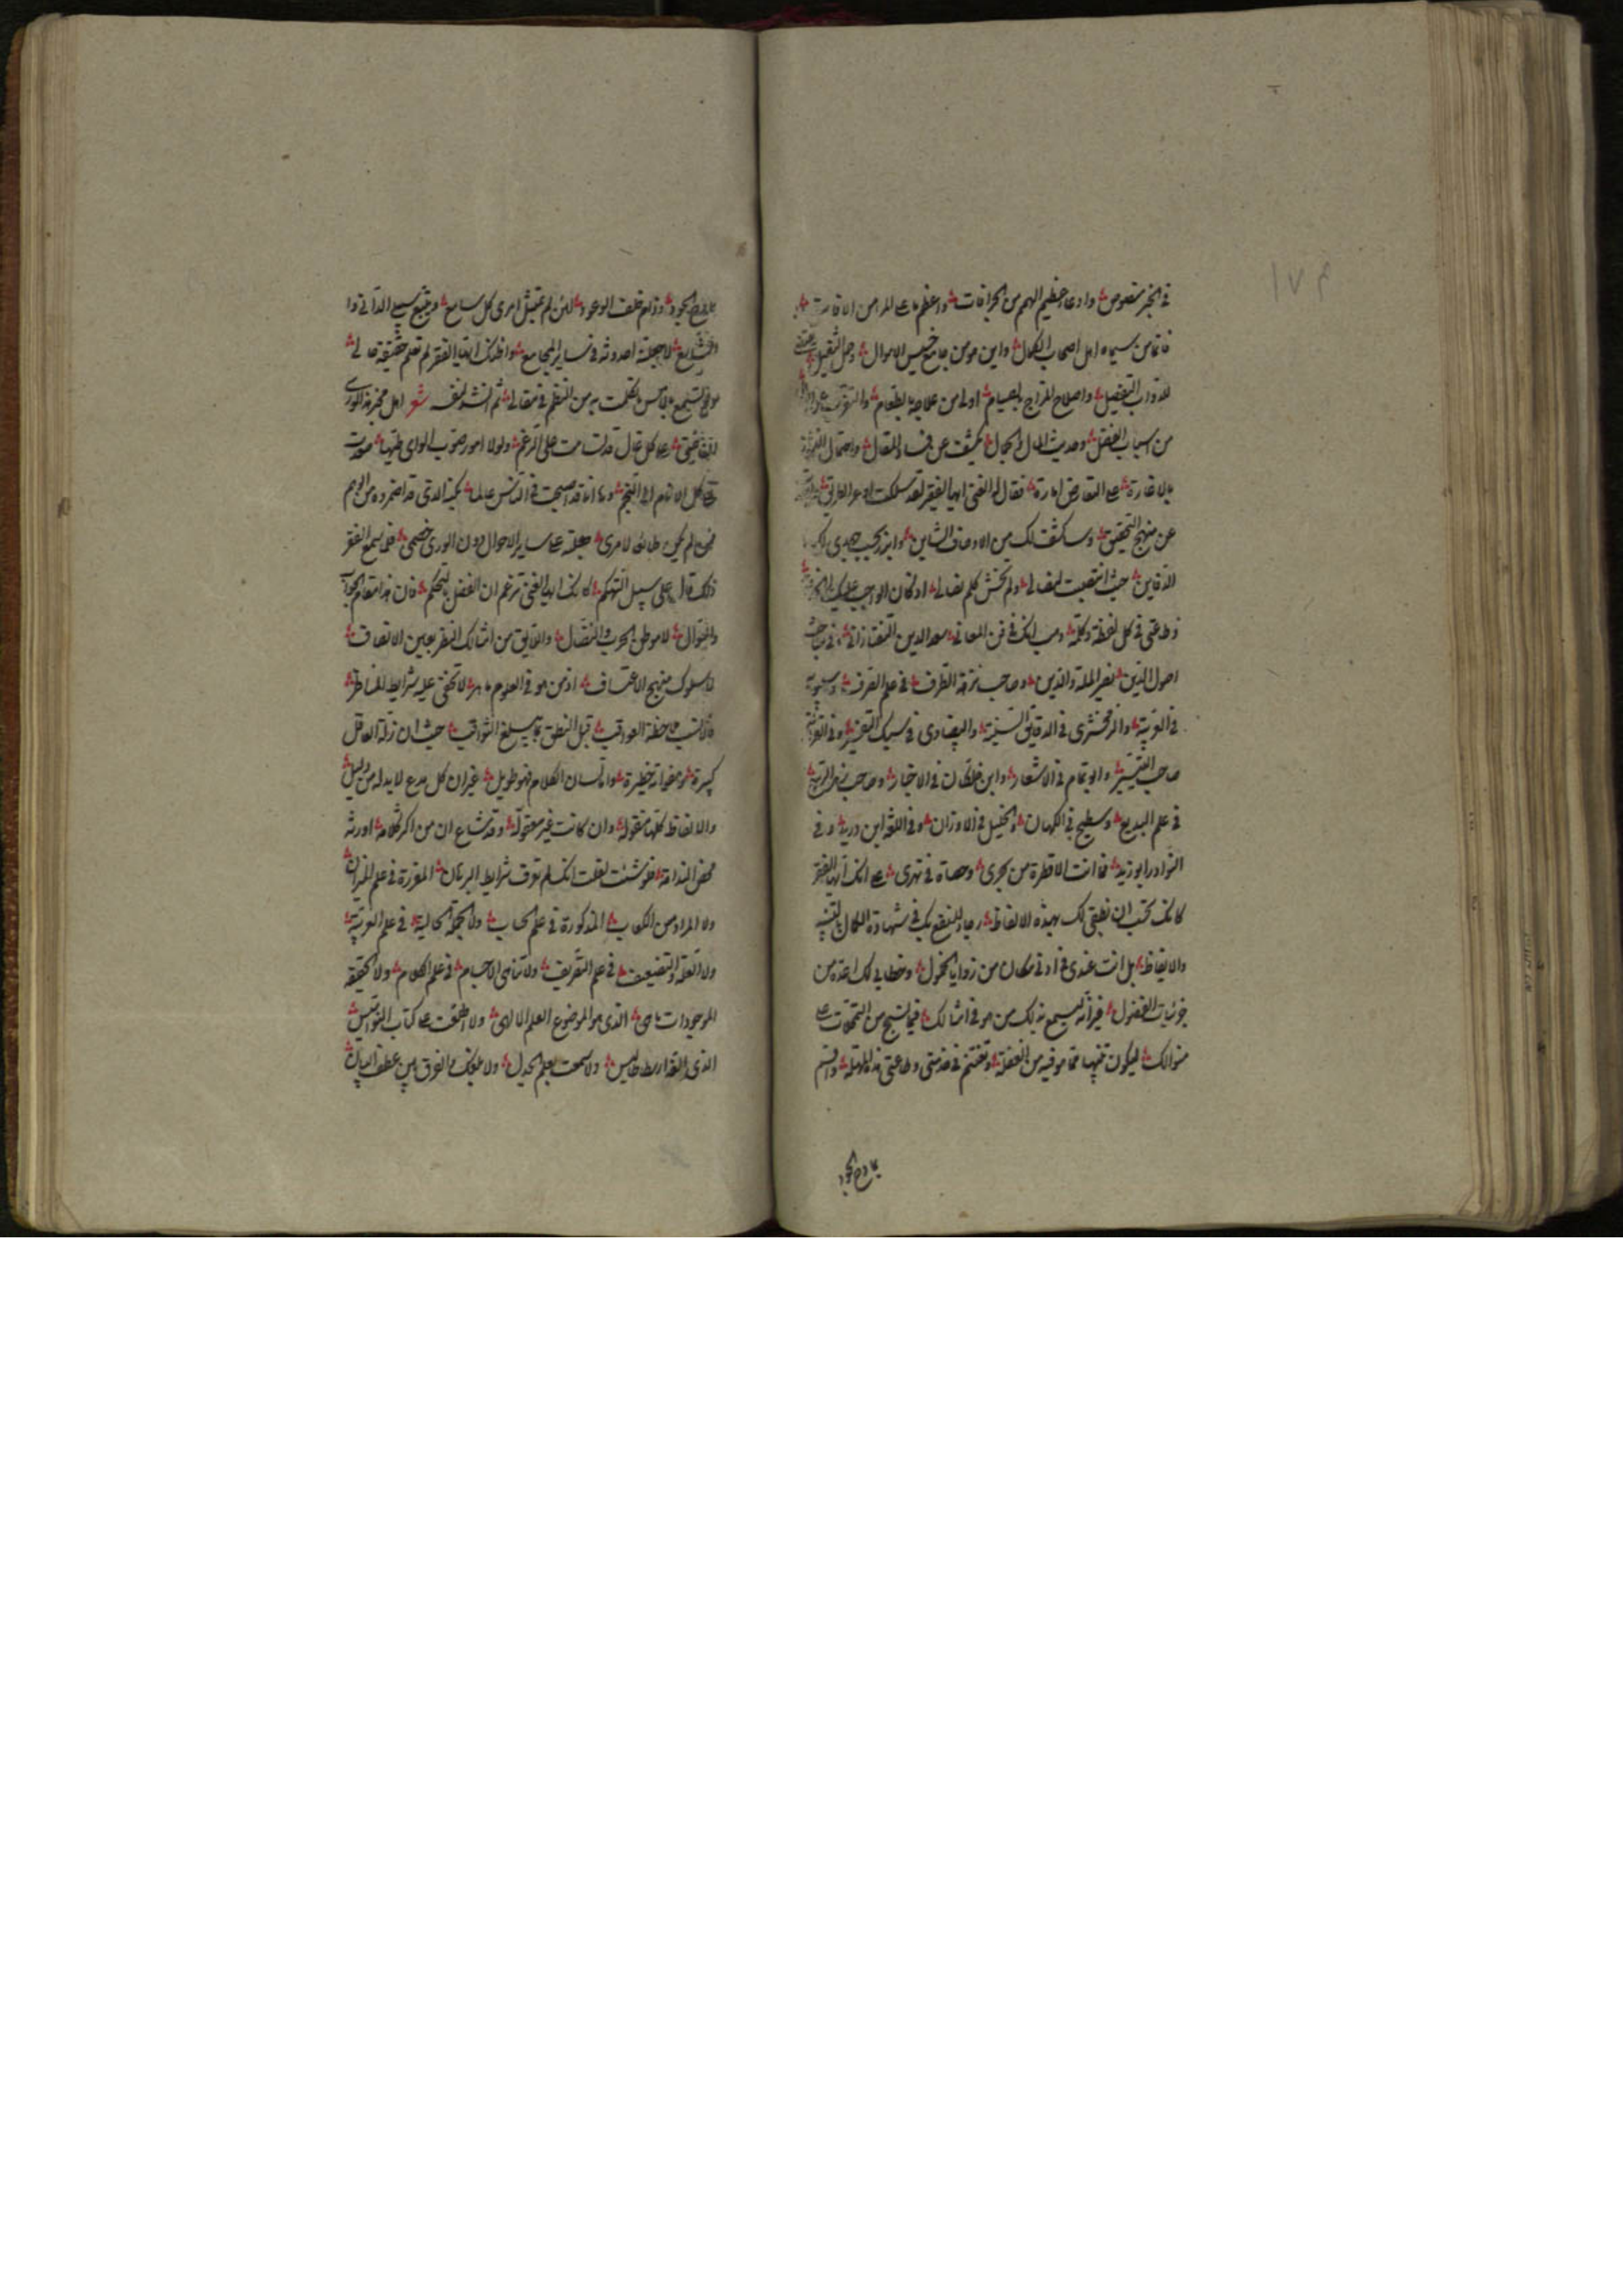 ١٧٤
في الخبر منصوص وادعا عظيم الهم من الخرافات واعظم ما على المرء من الافات
فاتما من سيماه اهل اصحاب الكمال واين هو من جامع خسيس الاموال وحمل الثقيل
للدواب التفضيل واصلاح المزاج بالصيام اولى من علاجه بالطعام
من اسباب الفضل وحديث المال والجمال يكشف عن فساد المقال واحتمال
بالاشارة على التعارض امارة فقال له الغني ايها الفقير لقد سلكت اوعر الطريق
عن منهج التحقيق وساكشف لك من الاوصاف الشاين وابرز بحبيب جهدي لك
الدفاين حيث انتصبت لمقالي ولم تخش كلم نصالي اذ كان الواجب عليك
وطاعتي في كل لفظة وكلمة وهب انك في فن المعاني سعد الدين التفتازاني وفي مباحث
اصول الدين نصير الملة والدين وصاحب نزهة الطرف في علم الصرف وسيبويه
في العربية والزمخشري في الدقايق السنية والبيضاوي في سبك التفسير وفي القراءة
صاحب التيسير وابو تمام في الاشعار وابن خلكان في الاخبار وصاحب
في علم البديع وسطيح في الكهان والخليل في الاوزان وفي اللغة ابن دريد وفي
النوادر ابو زيد فما انت الا قطرة من بحري وحصاة في نهري على انك ايها الفقير
كانك تحسب ان نطقي لك بهذه الالفاظ رجاء للنفع بك في شهادة الكمال بالتنبيه
والايقاظ بل انت عندي في ادنى مكان من زوايا الخمول وخطابي لك اعده من
جزئيات الفضول غير انه ليسمع بذلك من هو في امثالك فيما نسج من التمحلات على
منوالك ليكون تنبها مما هو فيه من الغفلة وتغتنم في خدمتي وطاعتي هذه المهلة واقسم
بما دح الجود
بمادح الجود وذام خلف الوعود لئن لم تمتثل امري كل سامع وتتبع سبيلي الداني وا
الشاسع لاجعلنه احدوثة في ساير المجامع واظنك ايها الفقير لم تعلم حقيقة حالي
ولم تسمع بالامس ما تكلمت به من النظم في مقالي ثم انشد لنفسه شعر اهل مخبر هذا الورى
ان همتي على كل عال قد تسامت على الرغم ولولا امور صوب الراي طيها صعدت
على كل الانام الى النجم وها انا قد اصبحت في الناس عالما بكنه الذي قد اضمروه من الوهم
فمن لم يكن طايعا لامري جعلته على ساير الاحوال دون الورى خصمي فلما سمع الفقير
ذلك قال على سبيل التهكم كانك ايها الغني تزعم ان الفضل بالتحكم فان هذا مقام الجواب
والسوال لا موطن الحرب والنضال واللايق من امثالك النظر بعين الانصاف
لا سلوك منهج الاعتساف اذ من هو في العلوم ماهر لا تخفى عليه شرايط المناظر
فالانسب ملاحظة العواقب قبل النطق بما يسلخ الثواقب حيث ان زلة العاقل
كبيرة وهفواته خطيرة واما لسان الكلام فهو طويل غير ان كل مدع لا بد له من دليل
والالفاظ كلها مقولة وان كانت غير معقولة وقد شاع ان من اكثر كلامه اورثه
محض الندامة فلو شئت لقلت انك لم تعرف شرايط البرهان المقررة في علم الميزان
ولا المراد من الكعاب المذكورة في علم الحساب ولا الجملة الحالية في علم العربية
ولا العلة والتضعيف في علم التصريف ولا تناهي الاجسام في علم الكلام ولا حقيقة
الموجودات ما هي الذي هو الموضوع العلم الالهي ولا اطلعت على كتاب النواميس
الذي الفه ارسطاطاليس ولا سمعت بعلم الجدل ولا يمكنك الفرق بين عطف البيان